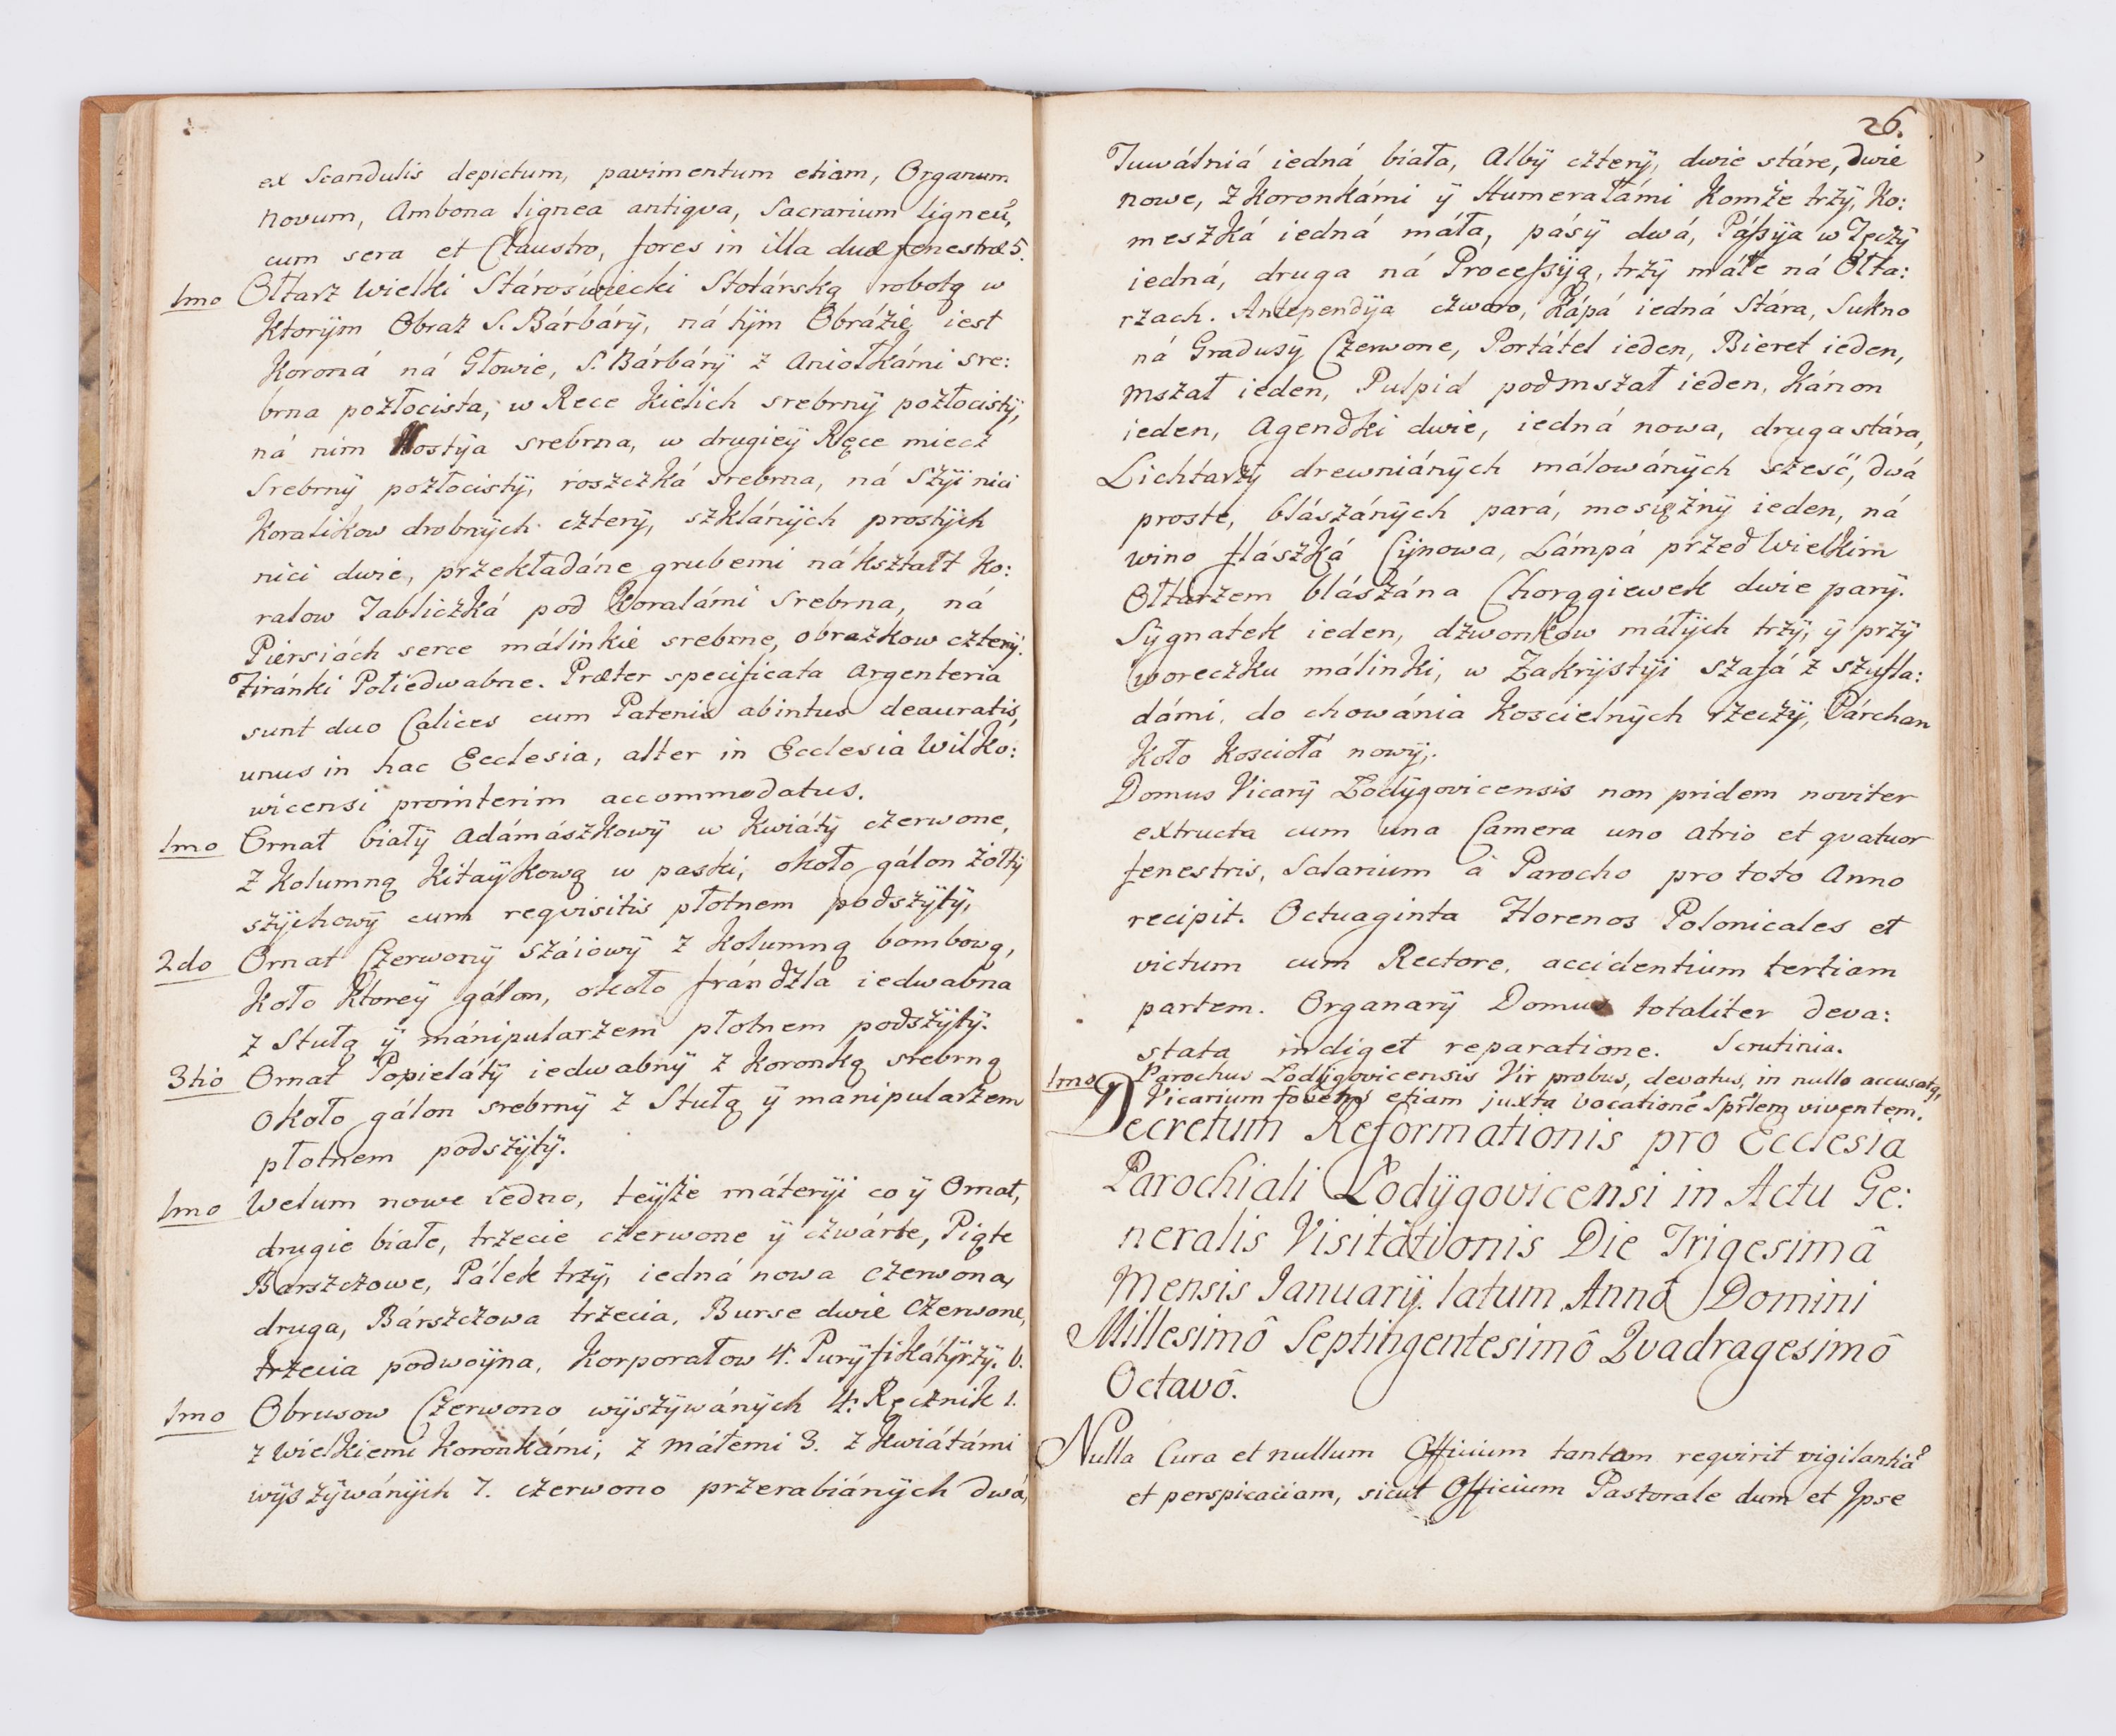 ex Scandulis depictum, pavimentum etiam, Organum
Novum, Ambona lignea antiqva, Sacrarium ligneũ,
cum sera et Claustro, fores in illa duæ fenestræ 5.
1mo Ołtarz Wielki Stároświecki Stolárską robotą w
ktorÿm Obraz S. Bárbárÿ, ná tÿm Obrázie iest
Koroná ná Głowie, S. Bárbárÿ z Aniołkámi sre:
brna pozłocista, w Rece Kielich srebrnÿ pozłocistÿ,
ná nim Hostÿa srebrna, w drugieÿ Ręce miecz
Srebrnÿ pozłocistÿ, roszczká srebrna, ná Szÿi nici
Koralikow drobnÿch czterÿ, szklánÿch prostÿch
nici dwie, przekładáne grubemi ná kształt Ko:
ralow Tabliczká pod Koralámi Srebrna, ná
Piersiách serce málinkie srebrne, obrazkow czterÿ.
Firánki Połiedwabne. Præter specificata Argenteria
sunt duo Calices cum Patenis abintus deauratis,
unus in hac Ecclesia, alter in Ecclesia Wilko:
wicensi prointerim accommodatus.
1mo Ornat białÿ Adámászkowÿ w Kwiátÿ czerwone,
z Kolumną Kitaÿkową w paski, około gálon żołtÿ
szÿchowÿ cum reqvisitis płotnem podszÿtÿ,
2do Ornat Czerwonÿ száiowÿ z Kolumną bombową,
Koło Ktoreÿ gálon, około frándzla iedwabna
z Stułą ÿ mánipularzem płotnem podszÿtÿ.
3tio Ornat Popielátÿ iedwabnÿ z Koronką srebrną
około gálon srebrnÿ z Stułą ÿ manipularzem
płotnem podszÿtÿ.
1mo Welum nowe iedno, teÿsże máterÿi co ÿ Ornat,
drugie białe, trzecie czerwone ÿ czwárte, Piąte
Barszczowe, Pálek trzÿ, iedná nowa czerwona,
druga, Bárszczowa trzecia, Burse dwie czerwone,
trzecia podwoÿna, Korporałow 4.
1mo Obrusow Czerwono wÿszÿwánÿch 4. Ręcznik 1.
z wielkiemi Koronkámi, z máłemi 3. z Kwiátámi
wÿszÿwánÿch 7. czerwono przerabiánÿch dwá,
26.
Tuwálniá iedná biała, Albÿ czterÿ, dwie stáre, dwie
nowe, z Koronkámi ÿ Humerałámi Komże trzÿ, Ko:
meszká iedná máła, pásÿ dwá, Páßÿa w
iedná, druga ná Proceßÿą, trzÿ máłe ná Ołta:
rzach. Antependÿa czworo, Kápá iedná Stára, Sukno
ná Gradusÿ Czerwone, Portátel ieden, Bieret ieden,
Mszał ieden, Pulpid pod mszał ieden, Kánon
ieden, Agendki dwie, iedná nowa, druga stára,
Lichtarzÿ drewniánÿch málowánÿch sześć, dwá
proste, blászánÿch pará, mosiężnÿ ieden, ná
wino flászká Cÿnowa, Lámpá przed Wielkim
Ołtarzem blászána Chorągiewek dwie parÿ.
Sÿgnatek ieden, dzwonkow małÿch trzÿ, ÿ przÿ
woreczku málinki, w Zakrÿstÿi szafá z szufla:
dámi, do chowánia Kościelnÿch rzeczÿ, Párchan
Koło Kościołá nowÿ.
Domus Vicarÿ Łodÿgovicensis non pridem noviter
extructa cum una Camera uno atrio et qvatuor
fenestris, Salarium à Parocho pro toto Anno
recipit. Octuaginta Florenos Polonicales et
victum cum Rectore, accidentium tertiam
partem. Organarÿ Domus totaliter deva:
stata indiget reparatione. Scrutinia.
1mo Parochus Lodÿgovicensis Vir probus, devotus, in nullo accusatq,
Vicarium fovens etiam juxta Vocationẽ Sprlem viventem.
Decretum Reformationis pro Ecclesia
Parochiali Łodÿgovicensi in Actu Ge:
neralis Visitationis Die Trigesimâ
Mensis Januarÿ. latum Annô Domini
Millesimô Septingentesimô Qvadragesimô
Octavô.
Nulla Cura et nullum Officium tantam reqvirit vigilantiã
et perspicaciam, sicut Officium Pastorale dum et Ipse